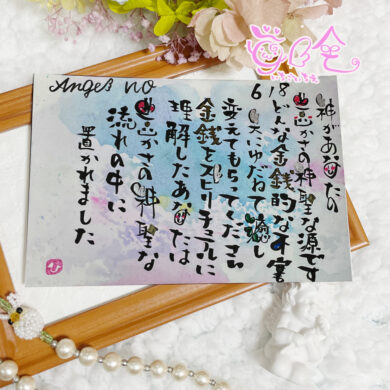 Angel NO
18
6
神があなたの
豊かさの神聖な源です
どんな金銭的な
天にゆだねて癒し
変えてもらってください
金銭をスピリチュアルに
理解したあなたは
豊かさの神聖な
流れの中に
置かれました